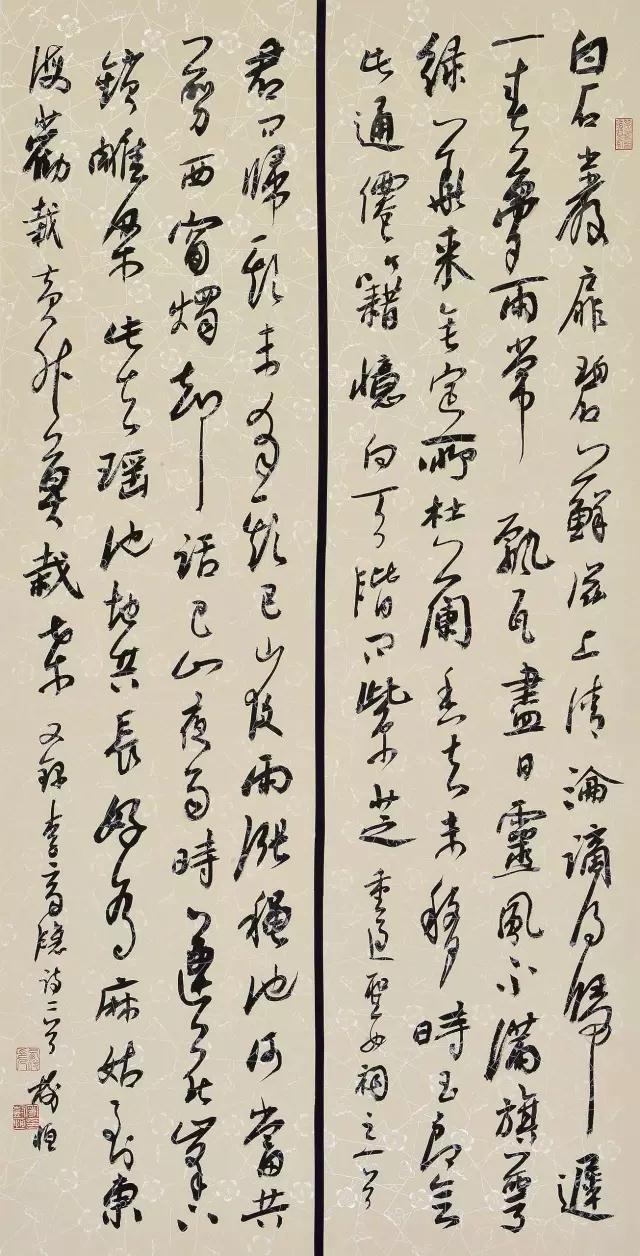 白石巖扉碧蘚滋上清淪謫得歸遲
一春夢雨常飄瓦盡日靈風不滿旗萼
綠華來無定所杜蘭香去未移時玉郎會
此通僊籍憶向天階問紫芝 重過聖女祠之一首
君問歸期未有期巴山夜雨漲穐池何當共
剪西窗燭却話巴山夜雨時蓮花峯下
鎖雕梁此去瑤池地共長好為麻姑到東
海勸栽黃竹莫栽桑 又録李商隱詩二首